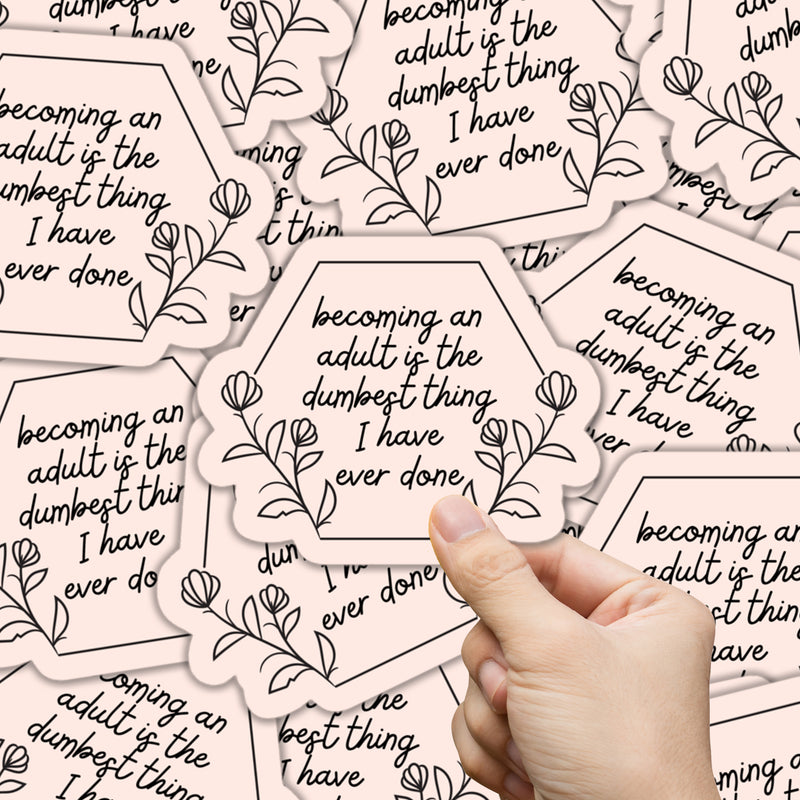 dumbest thing
I have
becoming an
adult is the
dumbest thing
I have
ever done
becoming an
adult is the
umbest thing
I have
ever done
becoming an
adult is the
dumbest thing
I have
ever done
becoming an
adult is the
dumbest thing
I have
ver done
becoming an
adult is the
dumbest thin
I have
ever do
ever done
becoming an
adult is the
st thin
have
coming an
adult is the
dumbest thing
I have
the
best thing
I have